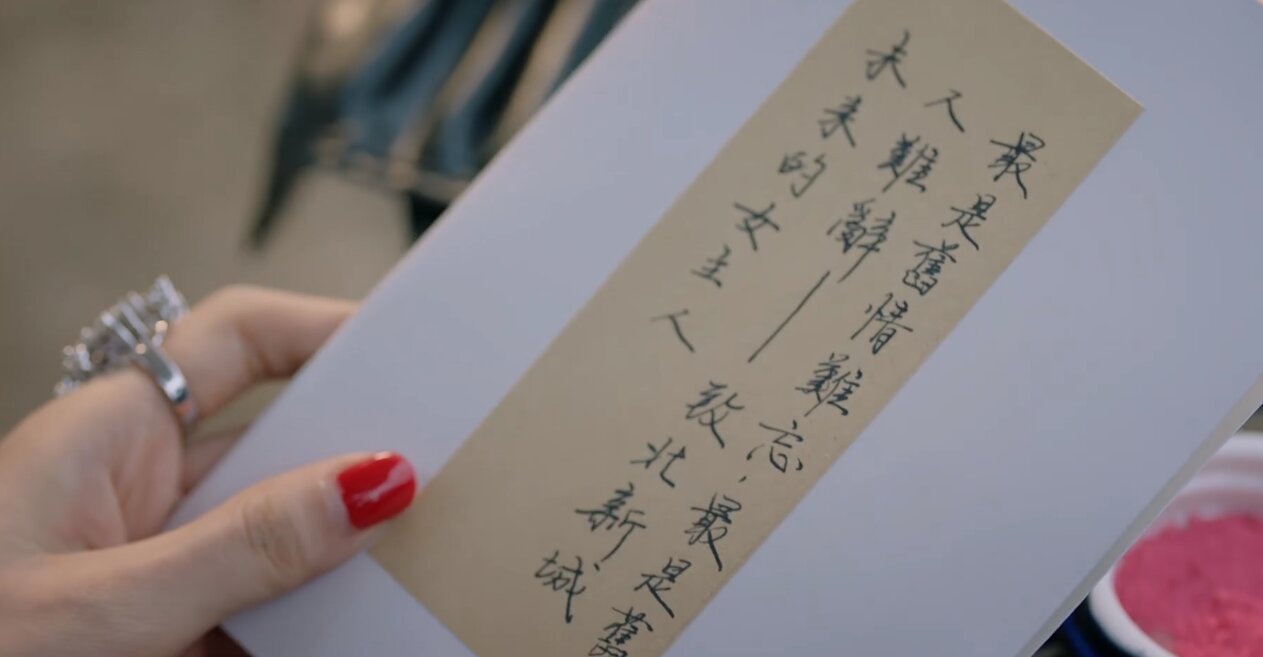 最是舊情難忘，最是舊
人難辭——致北新城
未来的女主人